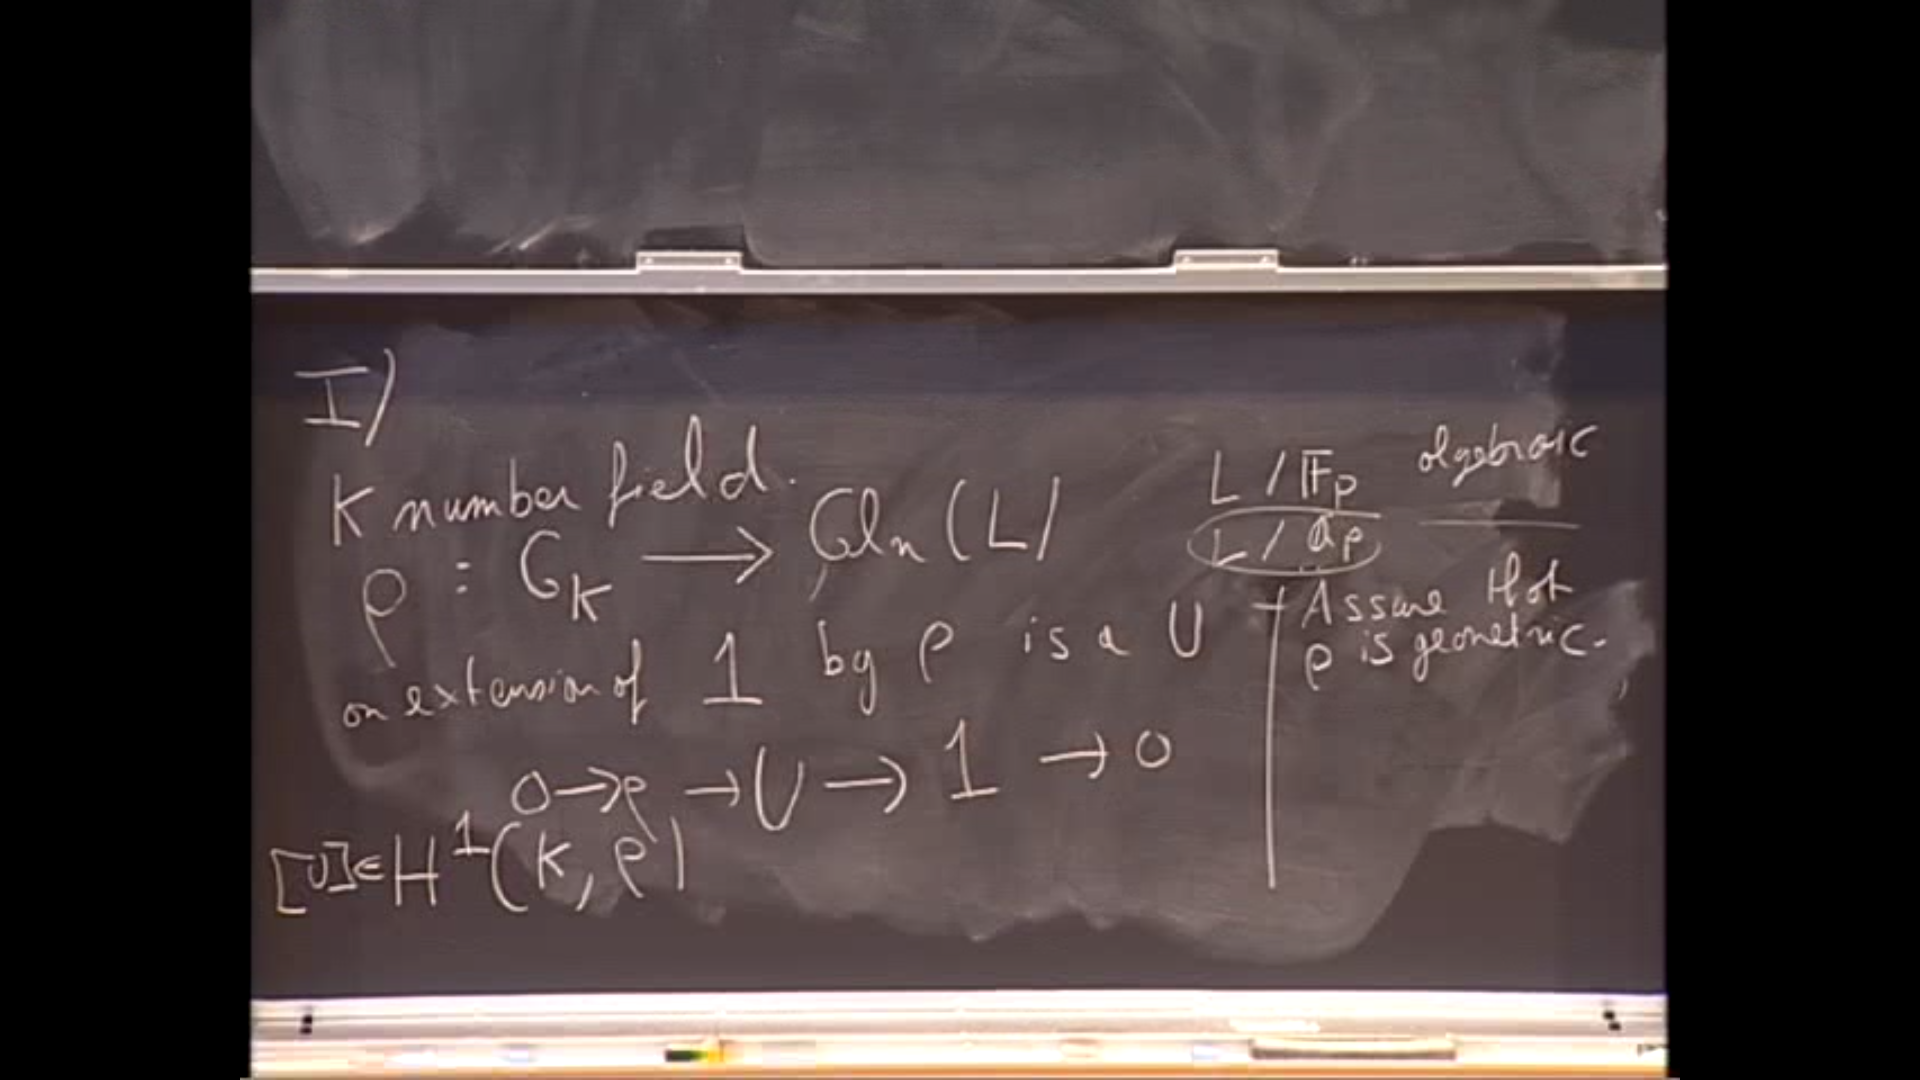 I)
K number field.
ρ : G_K → Gl_n(L)
an extension of 1 by ρ is a U
0 → ρ → U → 1 → 0
[U] ∈ H^1(K, ρ)
L / F_p algebraic
L / Q_p
Assume that
ρ is geometric.